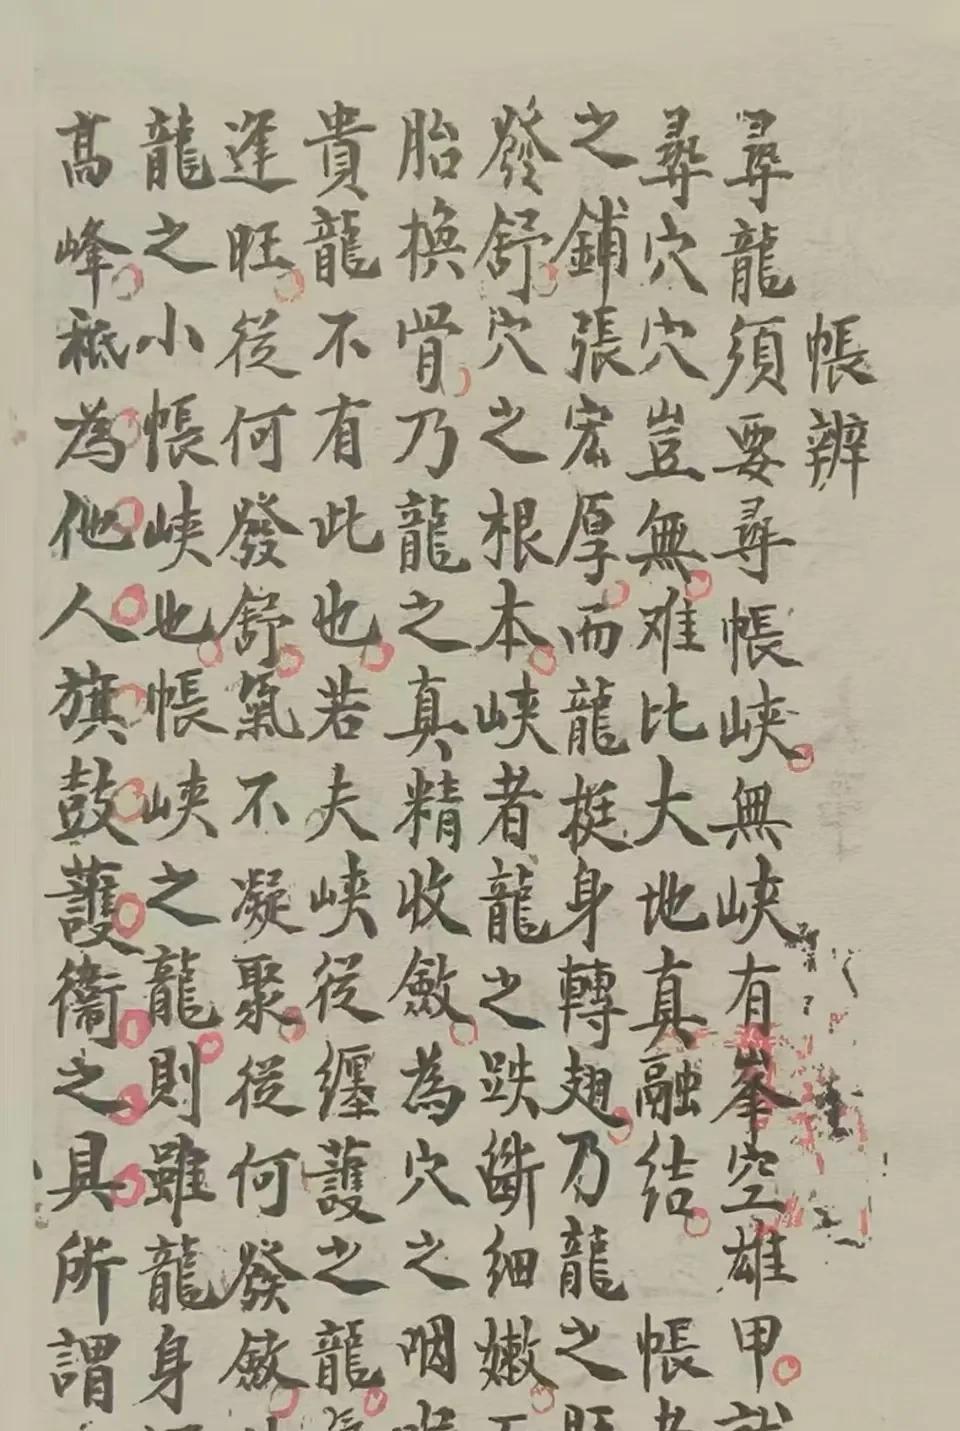 帳辨
尋龍須要尋帳峽無峽有峯空雄甲
尋穴穴豈無难比大地真融结帳
之鋪張宏厚而龍挺身轉翅乃龍之
發舒穴之根本峽者龍之跌斷细嫩
胎換骨乃龍之真精收斂為穴之咽
貴龍不有此也若夫峽從纏護之龍
逢旺從何發舒氣不凝聚從何發斂
龍之小帳峽也帳峽之龍則雖龍身
高峰祗為他人旗鼓護衛之具所謂